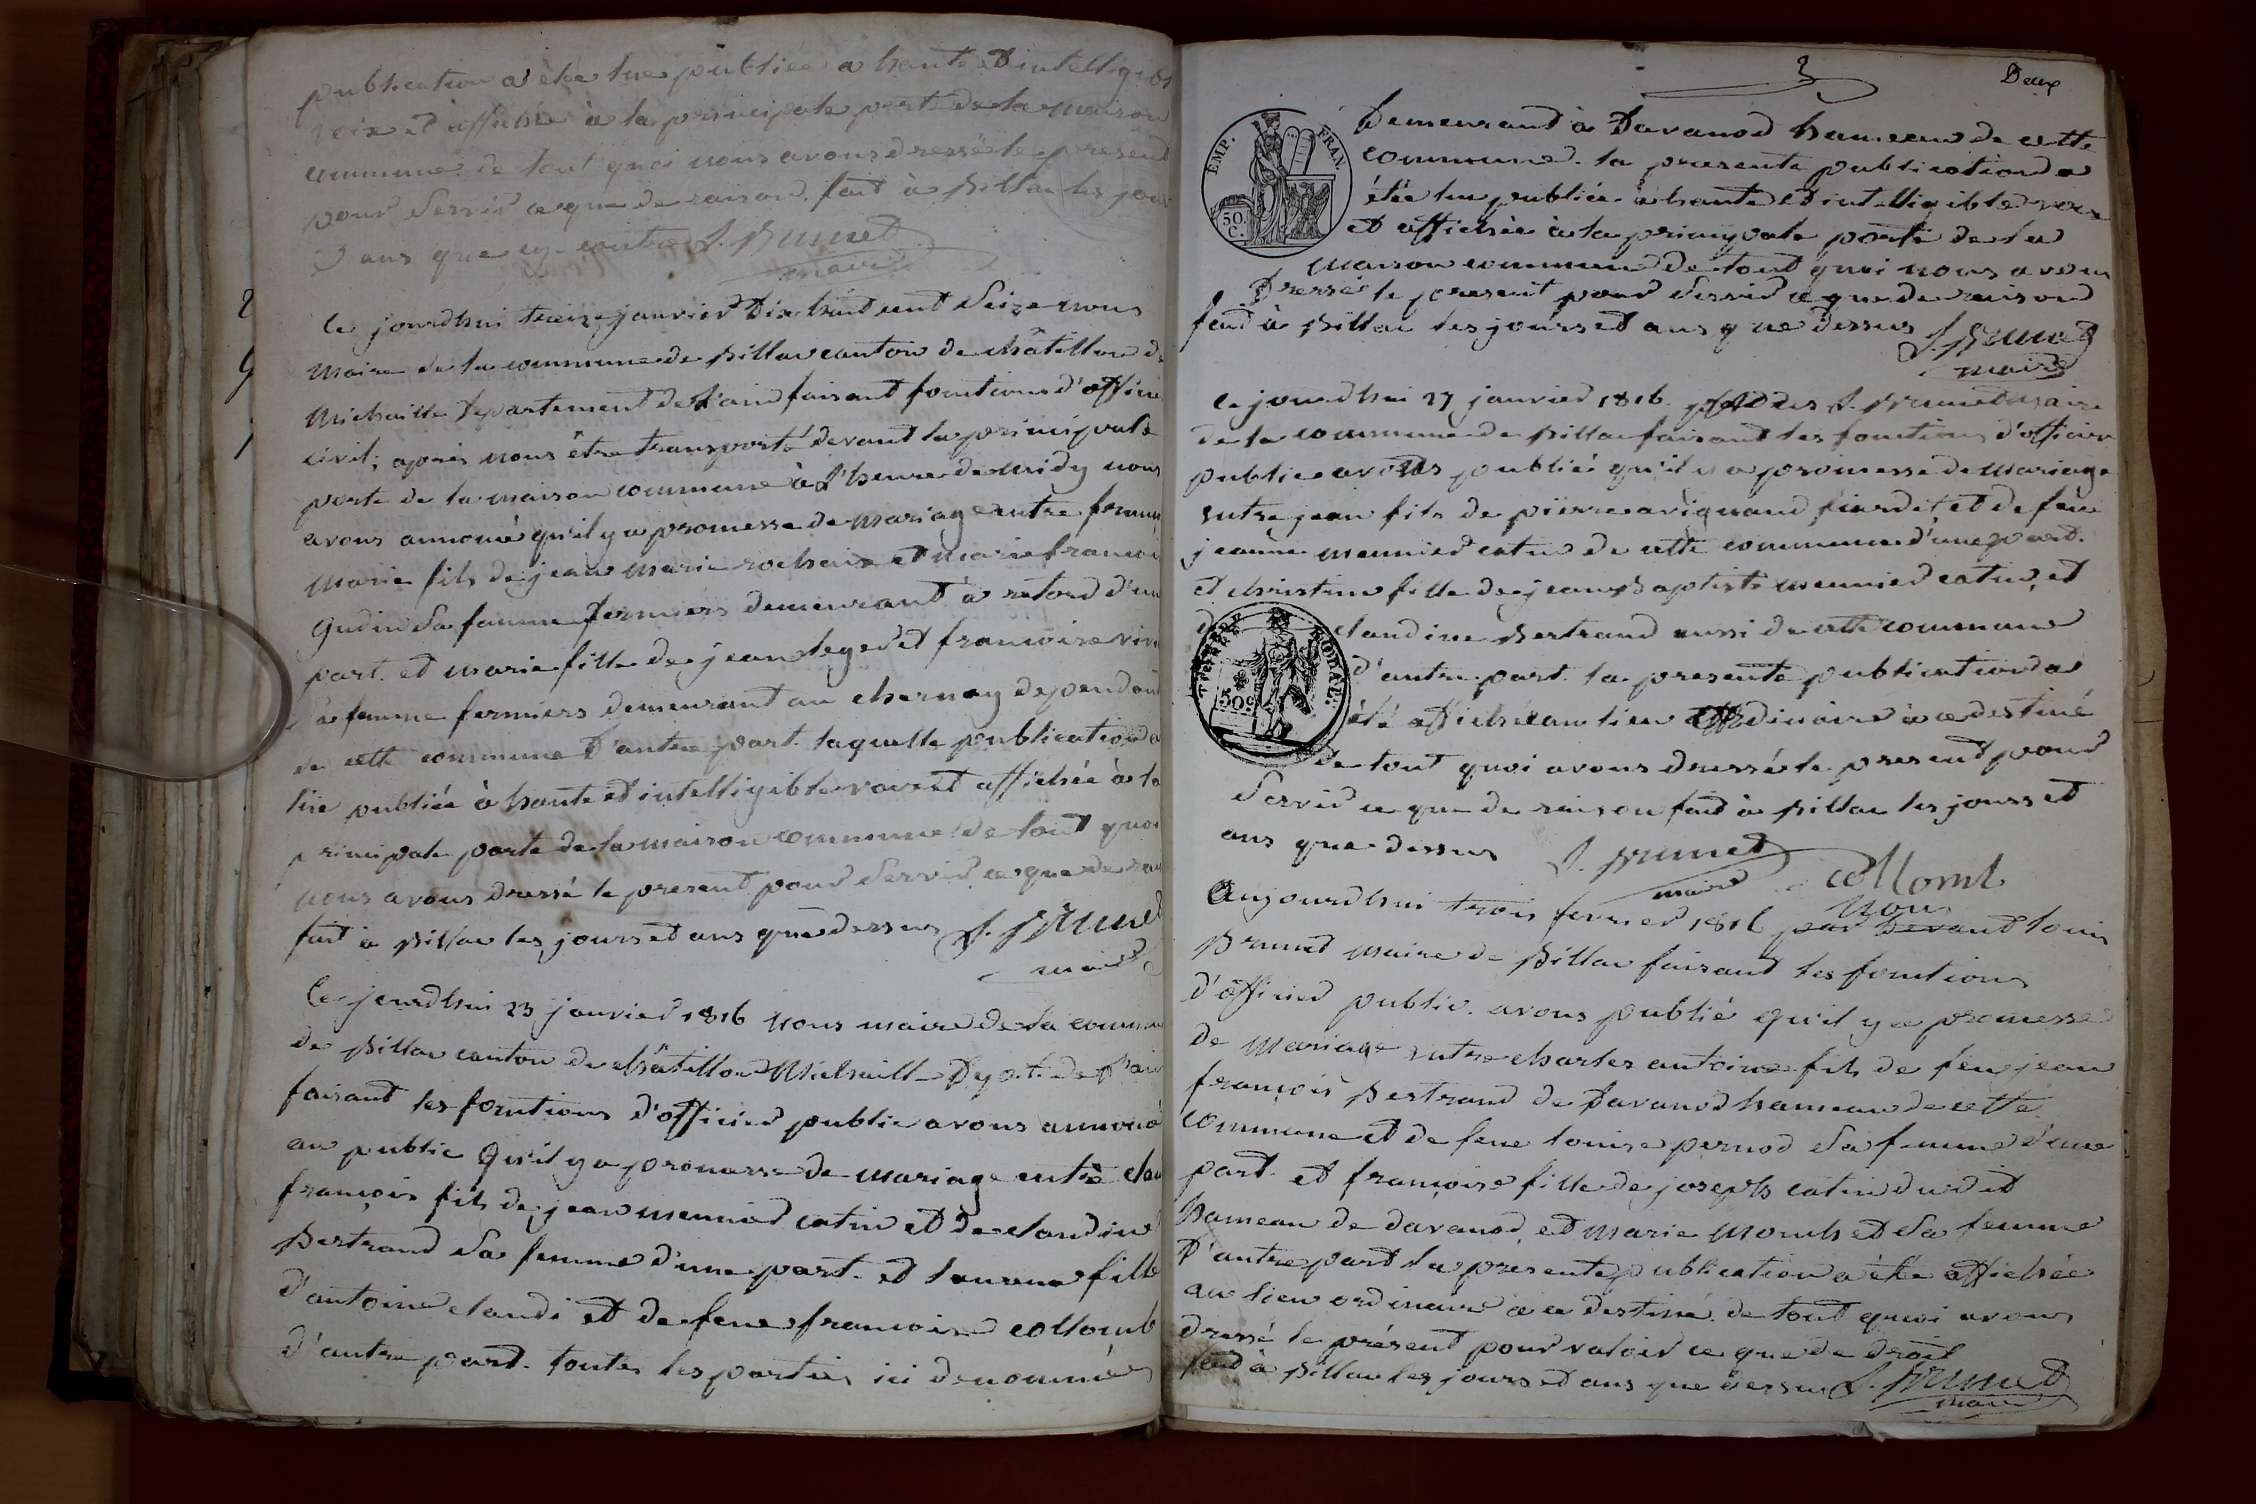 publication a été lue publiée a haute & intelligible
voix et affichée à la principale porte de la maison
commune de tout quoi nous avons dressé le present
pour servir ce que de raison. fait à Billac les jour
& ans que cy contre L. Brunet
maire
Ce jourdhui treize janvier dix huit cent seize nous
maire de la commune de Billac canton de châtillon de
Michaille département de l'ain faisant fonctions d'officier
civil; après nous être transporté devant la principale
porte de la maison commune à l'heure de midy nous
avons annoncé qu'il y a promesse de mariage entre
marie fils de jean marie rochaix et marie françoise
Gudin sa femme fermiers demeurant à retord d'une
part. et marie fille de jean leger et francoise
sa femme fermiers demeurant au chernay dependant
de cette commune d'autre part. laquelle publication a
lue publiée à haute et intelligible voix et affichée à la
principale porte de la maison commune de tout quoi
nous avons dressé le present pour servir ce que de
fait à Billac les jours et ans que dessus L. Brunet
maire
Ce jourdhui 23 janvier 1816 nous maire de la commune
de Billac canton de châtillon Michaille Dept. de l'ain
faisant les fonctions d'officier public avons annoncé
au public Qu'il y a promesse de mariage entre
françois fils de jean meunier catin et de claudine
Bertrand sa femme d'une part. et fille
d'antoine claudi et de feue francoise collomb
d'autre part. toutes les parties ici denommés
Deux
EMP. FRAN.
50. C.
Demeurand à Davanod hameau de cette
commune. la presente publication a
étée lue publiée à haute et intelligible voix
et affichée à la principale porte de la
maison commune de tout quoi nous avons
Dressé le present pour servir ce que de raison
fait à Billac les jours et ans que dessus L. Brunet
maire
Ce jourdhui 27 janvier 1816. L. Brunet maire
de la commune de Billac faisant les fonctions d'officier
public avons publié qu'il y a promesse de mariage
entre jean fils de pierre et de feue
jeanne meunier catin de cette commune d'une part.
et christine fille de jean Baptiste meunier catin, et
claudine Bertrand aussi de cette commune
TIMBRE ROYAL.
50c
d'autre part. la presente publication a
été affichée au lieu ordinaire à ce destiné
de tout quoi avons dressé le present pour
servir ce que de raison fait à Billac les jours et
ans que dessus L. Brunet
maire collomb
Aujourdhui trois fevrier 1816 par devant nous louis
Brunet maire de Billac faisant les fonctions
d'officier public. avons publié qu'il y a promesse
de mariage entre charles antoine fils de feu jean
françois Bertrand de Davanod hameau de cette
commune et de feue louise pernod sa femme d'une
part. et françoise fille de joseph catin dudit
hameau de davanod, et marie sa femme
D'autre part la presente publication a étée affichée
au lieu ordinaire a ce destiné. de tout quoi avons
dressé le présent pour valoir ce que de droit
fait à Billac les jours et ans que dessus L. Brunet
maire